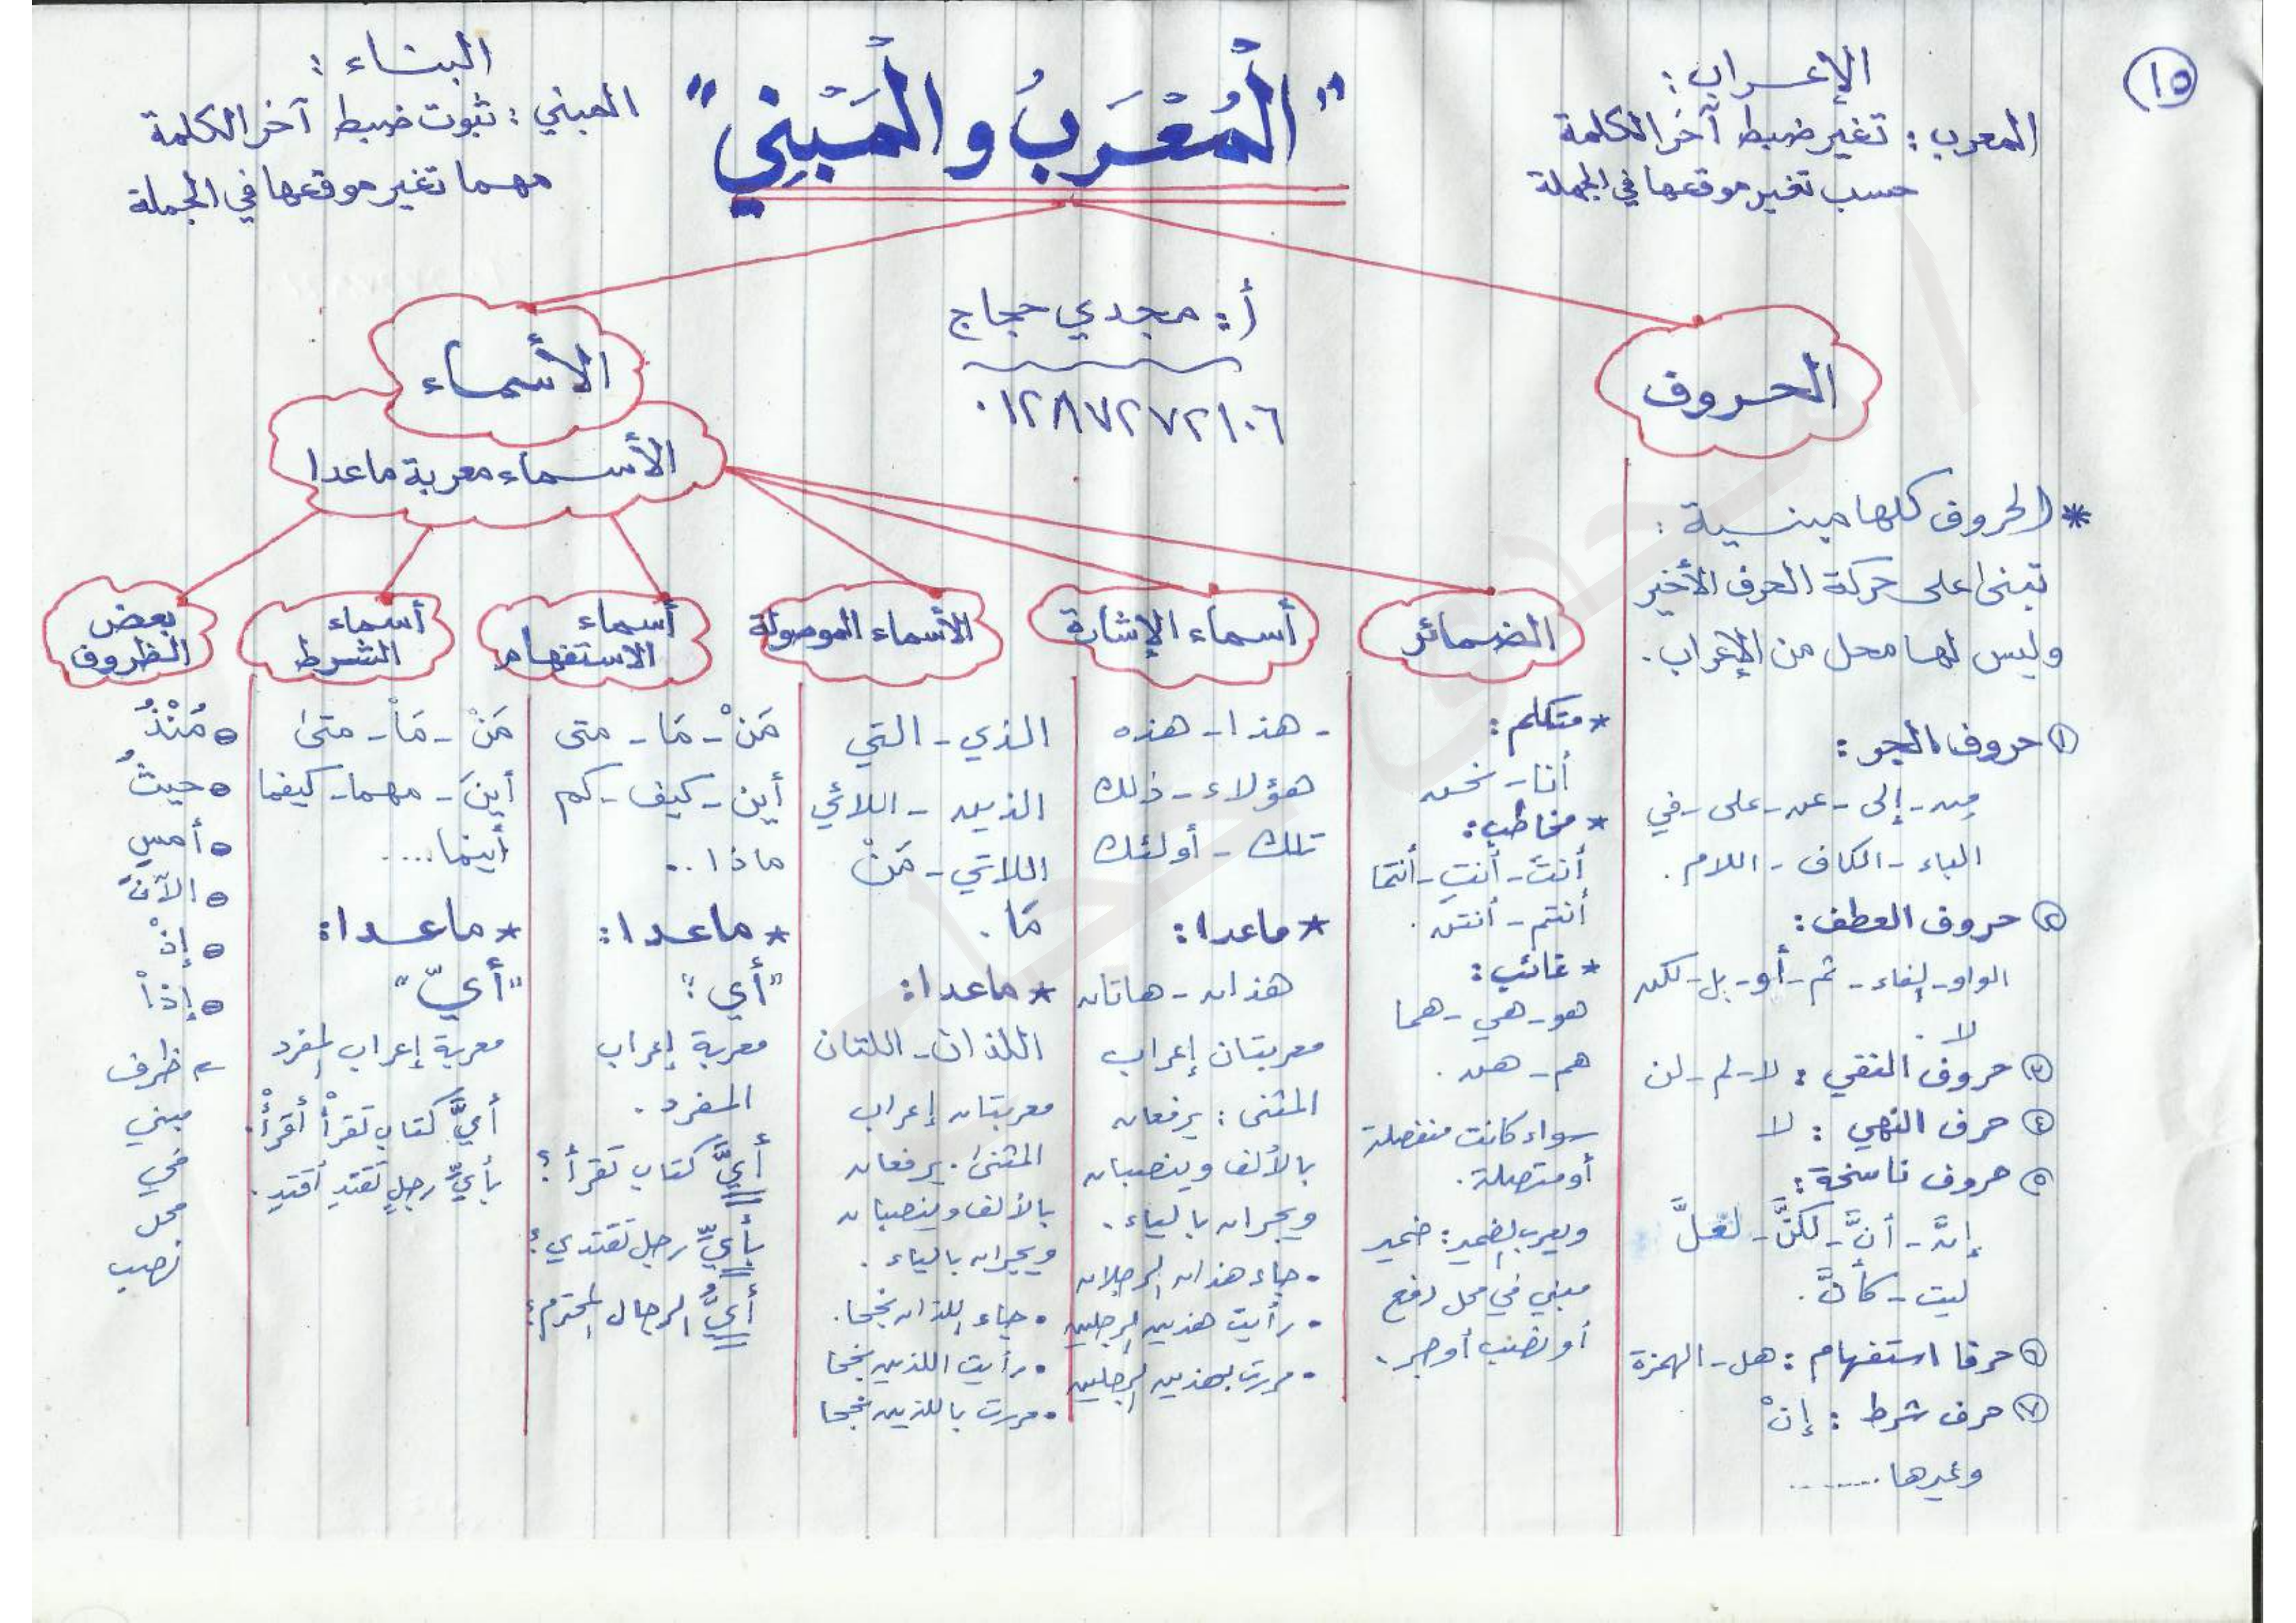 ١٥
الإعراب:
المعرب: تغير ضبط آخر الكلمة
حسب تغير موقعها في الجملة
"الْمُعْرَبُ والْمَبْنِي"
البناء:
المبني: ثبوت ضبط آخر الكلمة
مهما تغير موقعها في الجملة
أ: مجدي حجاج
٠١٢٨٧٢٧٢١٠٦
الحروف
* الحروف كلها مبنية:
تبنى على حركة الحرف الأخير
وليس لها محل من الإعراب.
١ حروف الجر:
من - إلى - عن - على - في
الباء - الكاف - اللام.
٢ حروف العطف:
الواو - الفاء - ثم - أو - بل - لكن
لا.
٣ حروف النفي: لا - لم - لن
٤ حرف النهي: لا
٥ حروف ناسخة:
إنَّ - أنَّ - لكنَّ - لعلَّ
ليت - كأنَّ.
٦ حرفا استفهام: هل - الهمزة
٧ حرف شرط: إنْ
وغيرها ........
الأسماء
الأسماء معربة ماعدا
الضمائر
* متكلم:
أنا - نحن
* مخاطب:
أنتَ - أنتِ - أنتما
أنتم - أنتن.
* غائب:
هو - هي - هما
هم - هن.
سواء كانت منفصلة
أو متصلة.
ويعرب الضمير: ضمير
مبني في محل رفع
أو نصب أو جر.
أسماء الإشارة
- هذا - هذه
هؤلاء - ذلك
تلك - أولئك
* ماعدا:
هذان - هاتان
معربتان إعراب
المثنى: يرفعان
بالألف وينصبان
ويجران بالياء.
• جاء هذان الرجلان
• رأيت هذين الرجلين
• مررت بهذين الرجلين
الأسماء الموصولة
الذي - التي
الذين - اللائي
اللاتي - مَنْ
مَا.
* ماعدا:
اللذان - اللتان
معربتان إعراب
المثنى. يرفعان
بالألف وينصبان
ويجران بالياء.
• جاء اللذان نجحا.
• رأيت اللذين نجحا
• مررت باللذين نجحا
أسماء
الاستفهام
مَنْ - مَا - متى
أين - كيف - كم
ماذا ..
* ماعدا:
"أي":
معربة إعراب
المفرد.
أيَّ كتاب تقرأ؟
بأيِّ رجل تقتدي؟
أيُّ الرجال المحترم؟
أسماء
الشرط
مَنْ - مَاْ - متىٰ
أينَ - مهما - كيفما
أينما ....
* ماعدا:
"أيّ"
معربة إعراب المفرد
أيَّ كتابٍ تقرأْ أقرأْ.
بأيِّ رجلٍ تقتدِ أقتدِ.
بعض
الظروف
مُنْذُ
حيثُ
أمسِ
الآنَ
إذْ
إذاْ
ظرف
مبني
في
محل
نصب